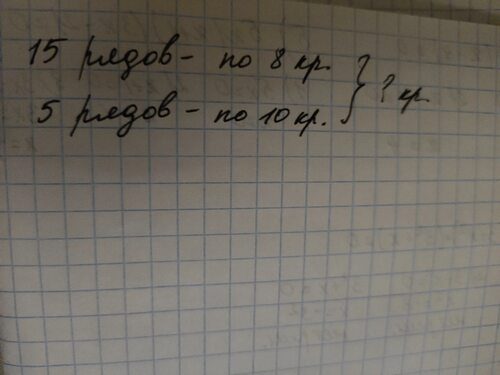 15 рядов - по 8 кр.
5 рядов - по 10 кр. } ? кр.